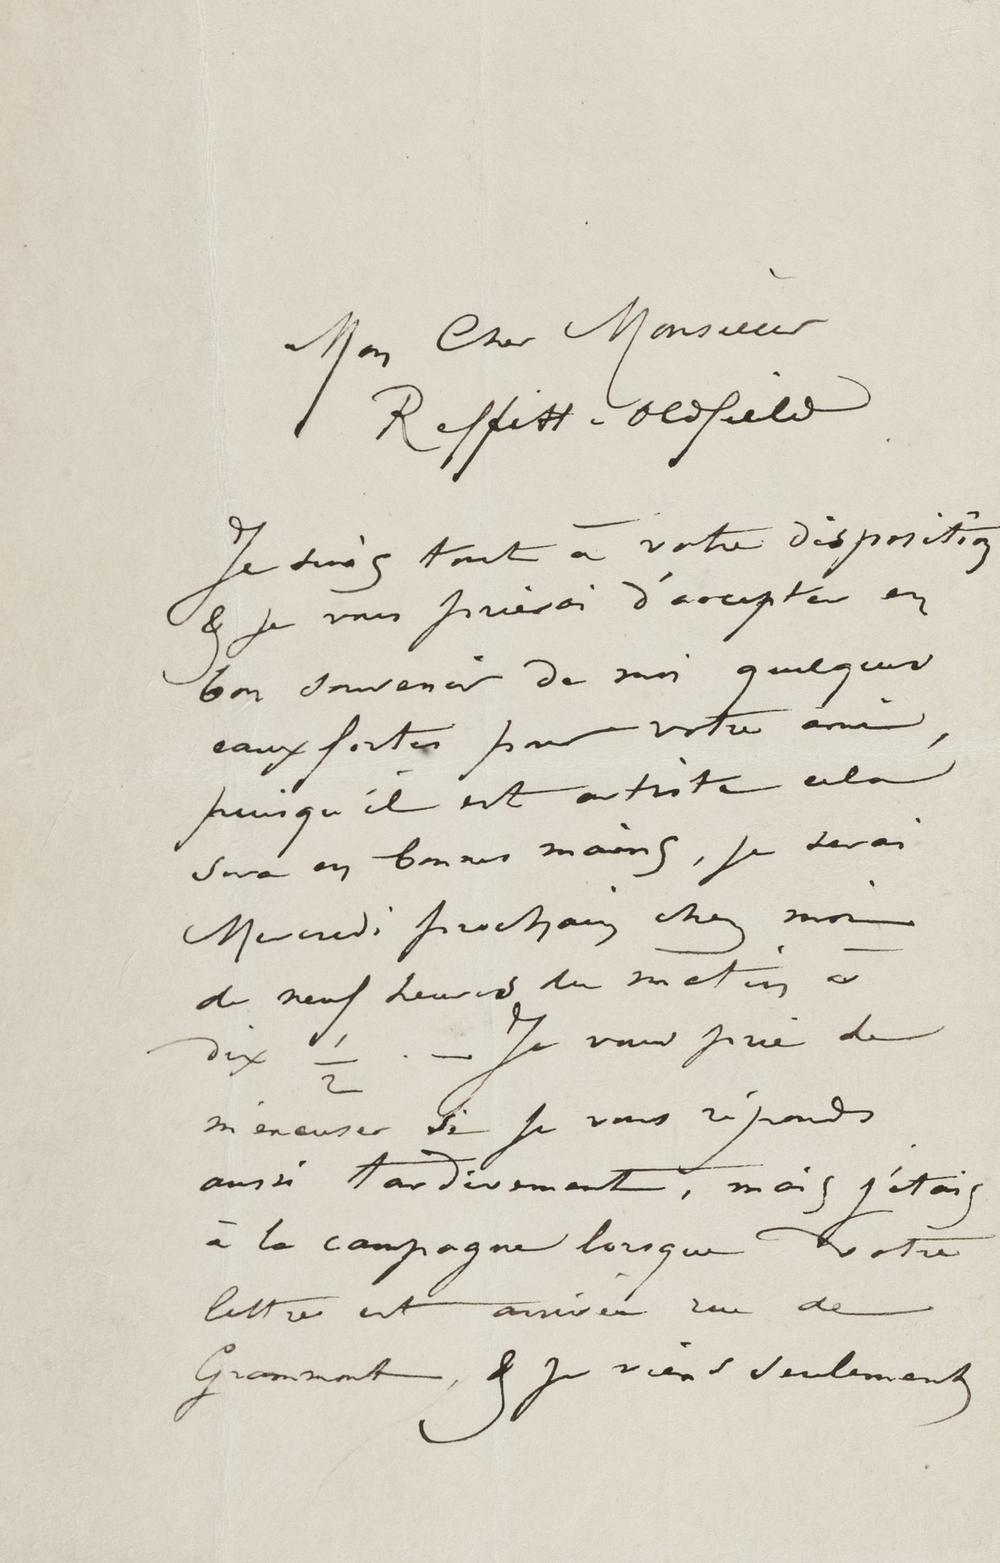 Mon Cher Monsieur
Reffitt-Oldfield
Je suis tout à votre disposition
& je vous prierai d'accepter en
bon souvenir de moi quelques
eaux fortes pour votre ami,
puisqu'il est artiste cela
sera en bonnes mains, je serai
Mercredi prochain chez moi
de neuf heures du matin à
dix ½ . — Je vous prie de
m'excuser si je vous réponds
aussi tardivement, mais j'étais
à la campagne lorsque votre
lettre est arrivée rue de
Grammont, & je viens seulement